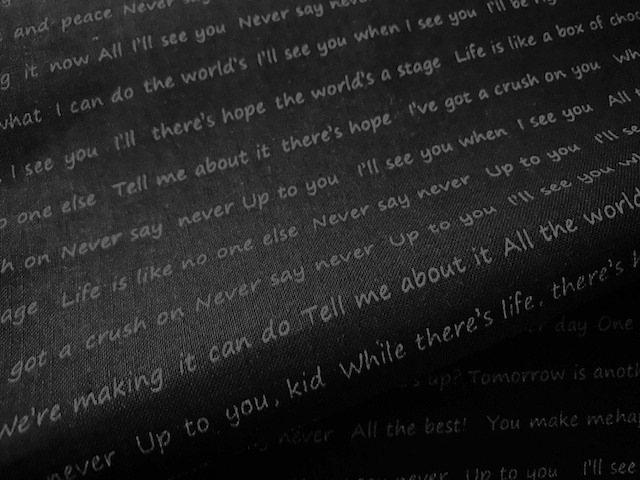 and peace Never say
it now All I'll see you Never say never
what I can do the world's I'll see you when I see you I'll be
I see you I'll there's hope the world's a stage Life is like a box of
one else Tell me about it there's hope I've got a crush on you
on Never say never Up to you I'll see you when I see you All
Life is like no one else Never say never Up to you I'll
got a crush on Never say never Up to you I'll see you
We're making it can do Tell me about it All the world
never Up to you, kid While there's life, there's
day One
up? Tomorrow is
never All the best! You make
never Up to you I'll see